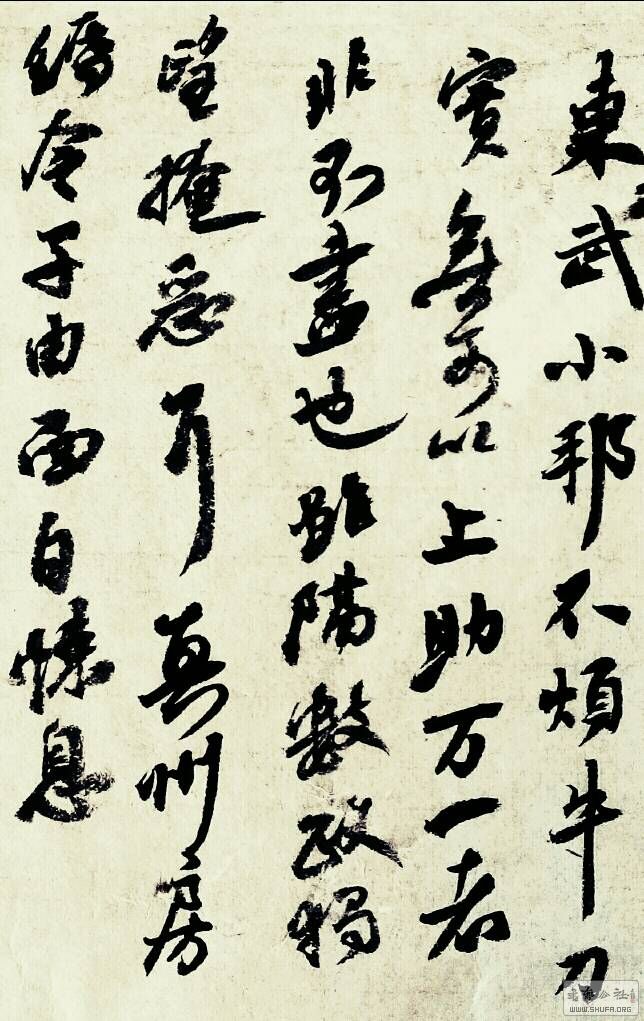 東武小邦不煩牛刀
實無可以上助万一者
非不盡也雖隔數政猶
望掩惡耳真州房
緡令子由面白悚息
WWW.SHUFA.ORG